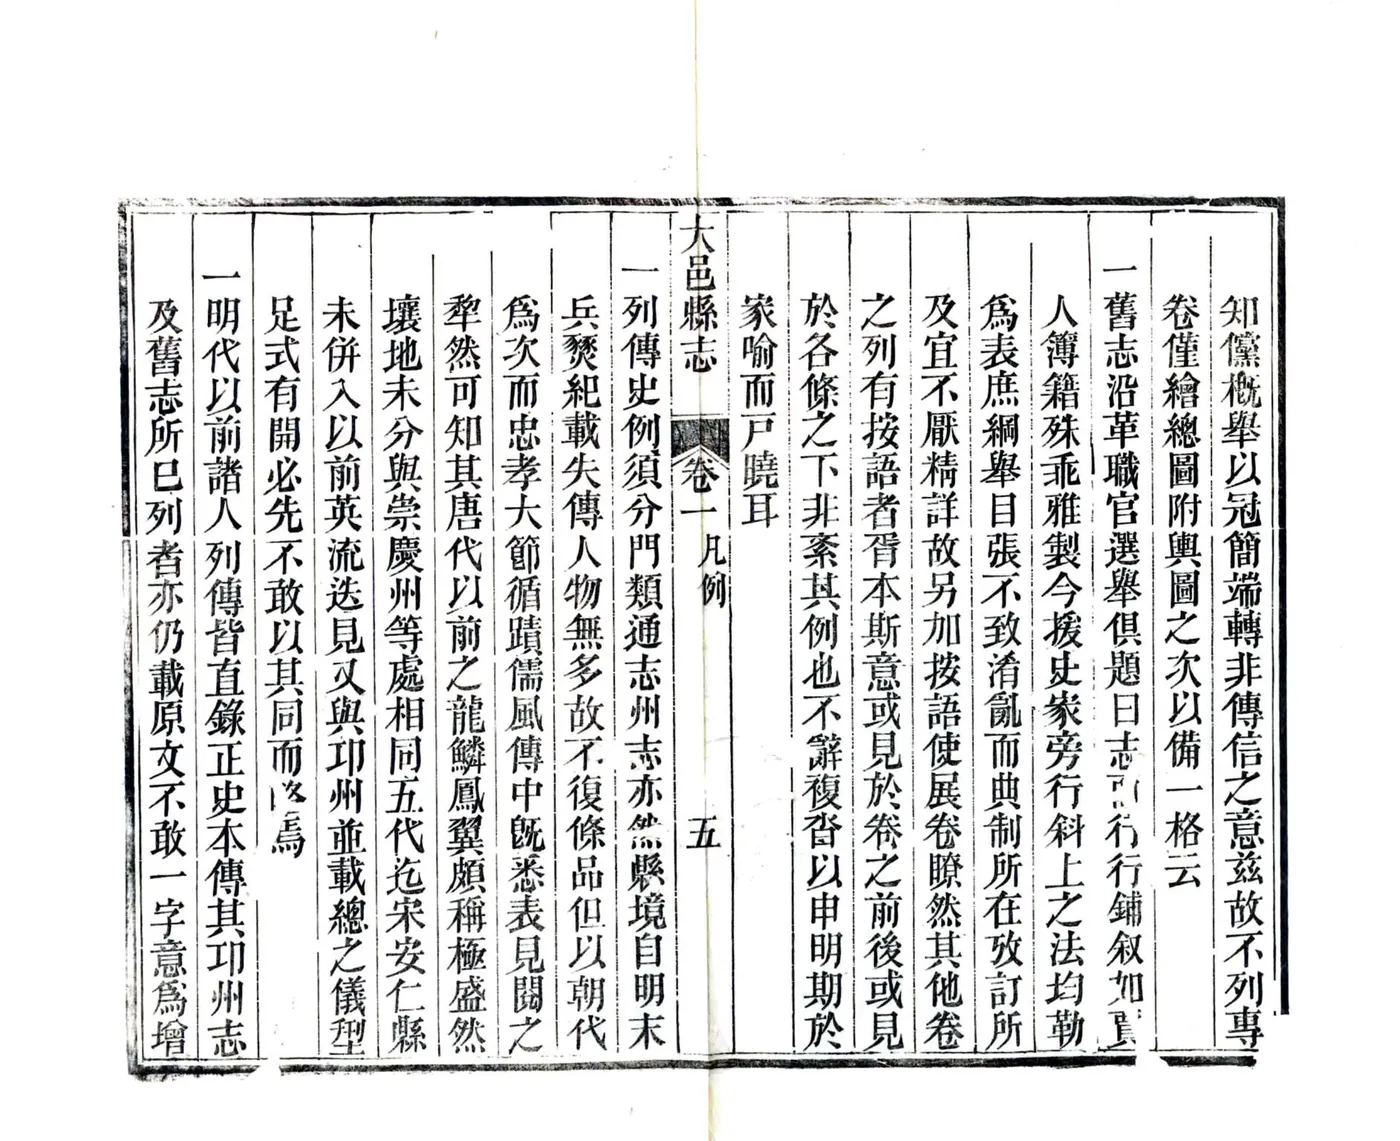 知儻槪舉以冠簡端轉非傳信之意茲故不列專
卷僅繪總圖附輿圖之次以備一格云
一舊志沿革職官選舉俱題曰志而行行鋪叙如賈
人簿籍殊乖雅製今援史家旁行斜上之法均勒
爲表庶綱舉目張不致淆亂而典制所在攷訂所
及宜不厭精詳故另加按語使展卷瞭然其他卷
之列有按語者胥本斯意或見於卷之前後或見
於各條之下非紊其例也不辭複沓以申明期於
家喻而戸曉耳
大邑縣志 卷一 凡例 五
一列傳史例須分門類通志州志亦然縣境自明末
兵燹紀載失傳人物無多故不復條品但以朝代
爲次而忠孝大節循蹟儒風傳中旣悉表見閱之
犂然可知其唐代以前之龍鱗鳳翼頗稱極盛然
壤地未分與崇慶州等處相同五代迄宋安仁縣
未併入以前英流迭見又與邛州並載總之儀型
足式有開必先不敢以其同而畧焉
一明代以前諸人列傳皆直錄正史本傳其邛州志
及舊志所已列者亦仍載原文不敢一字意爲增